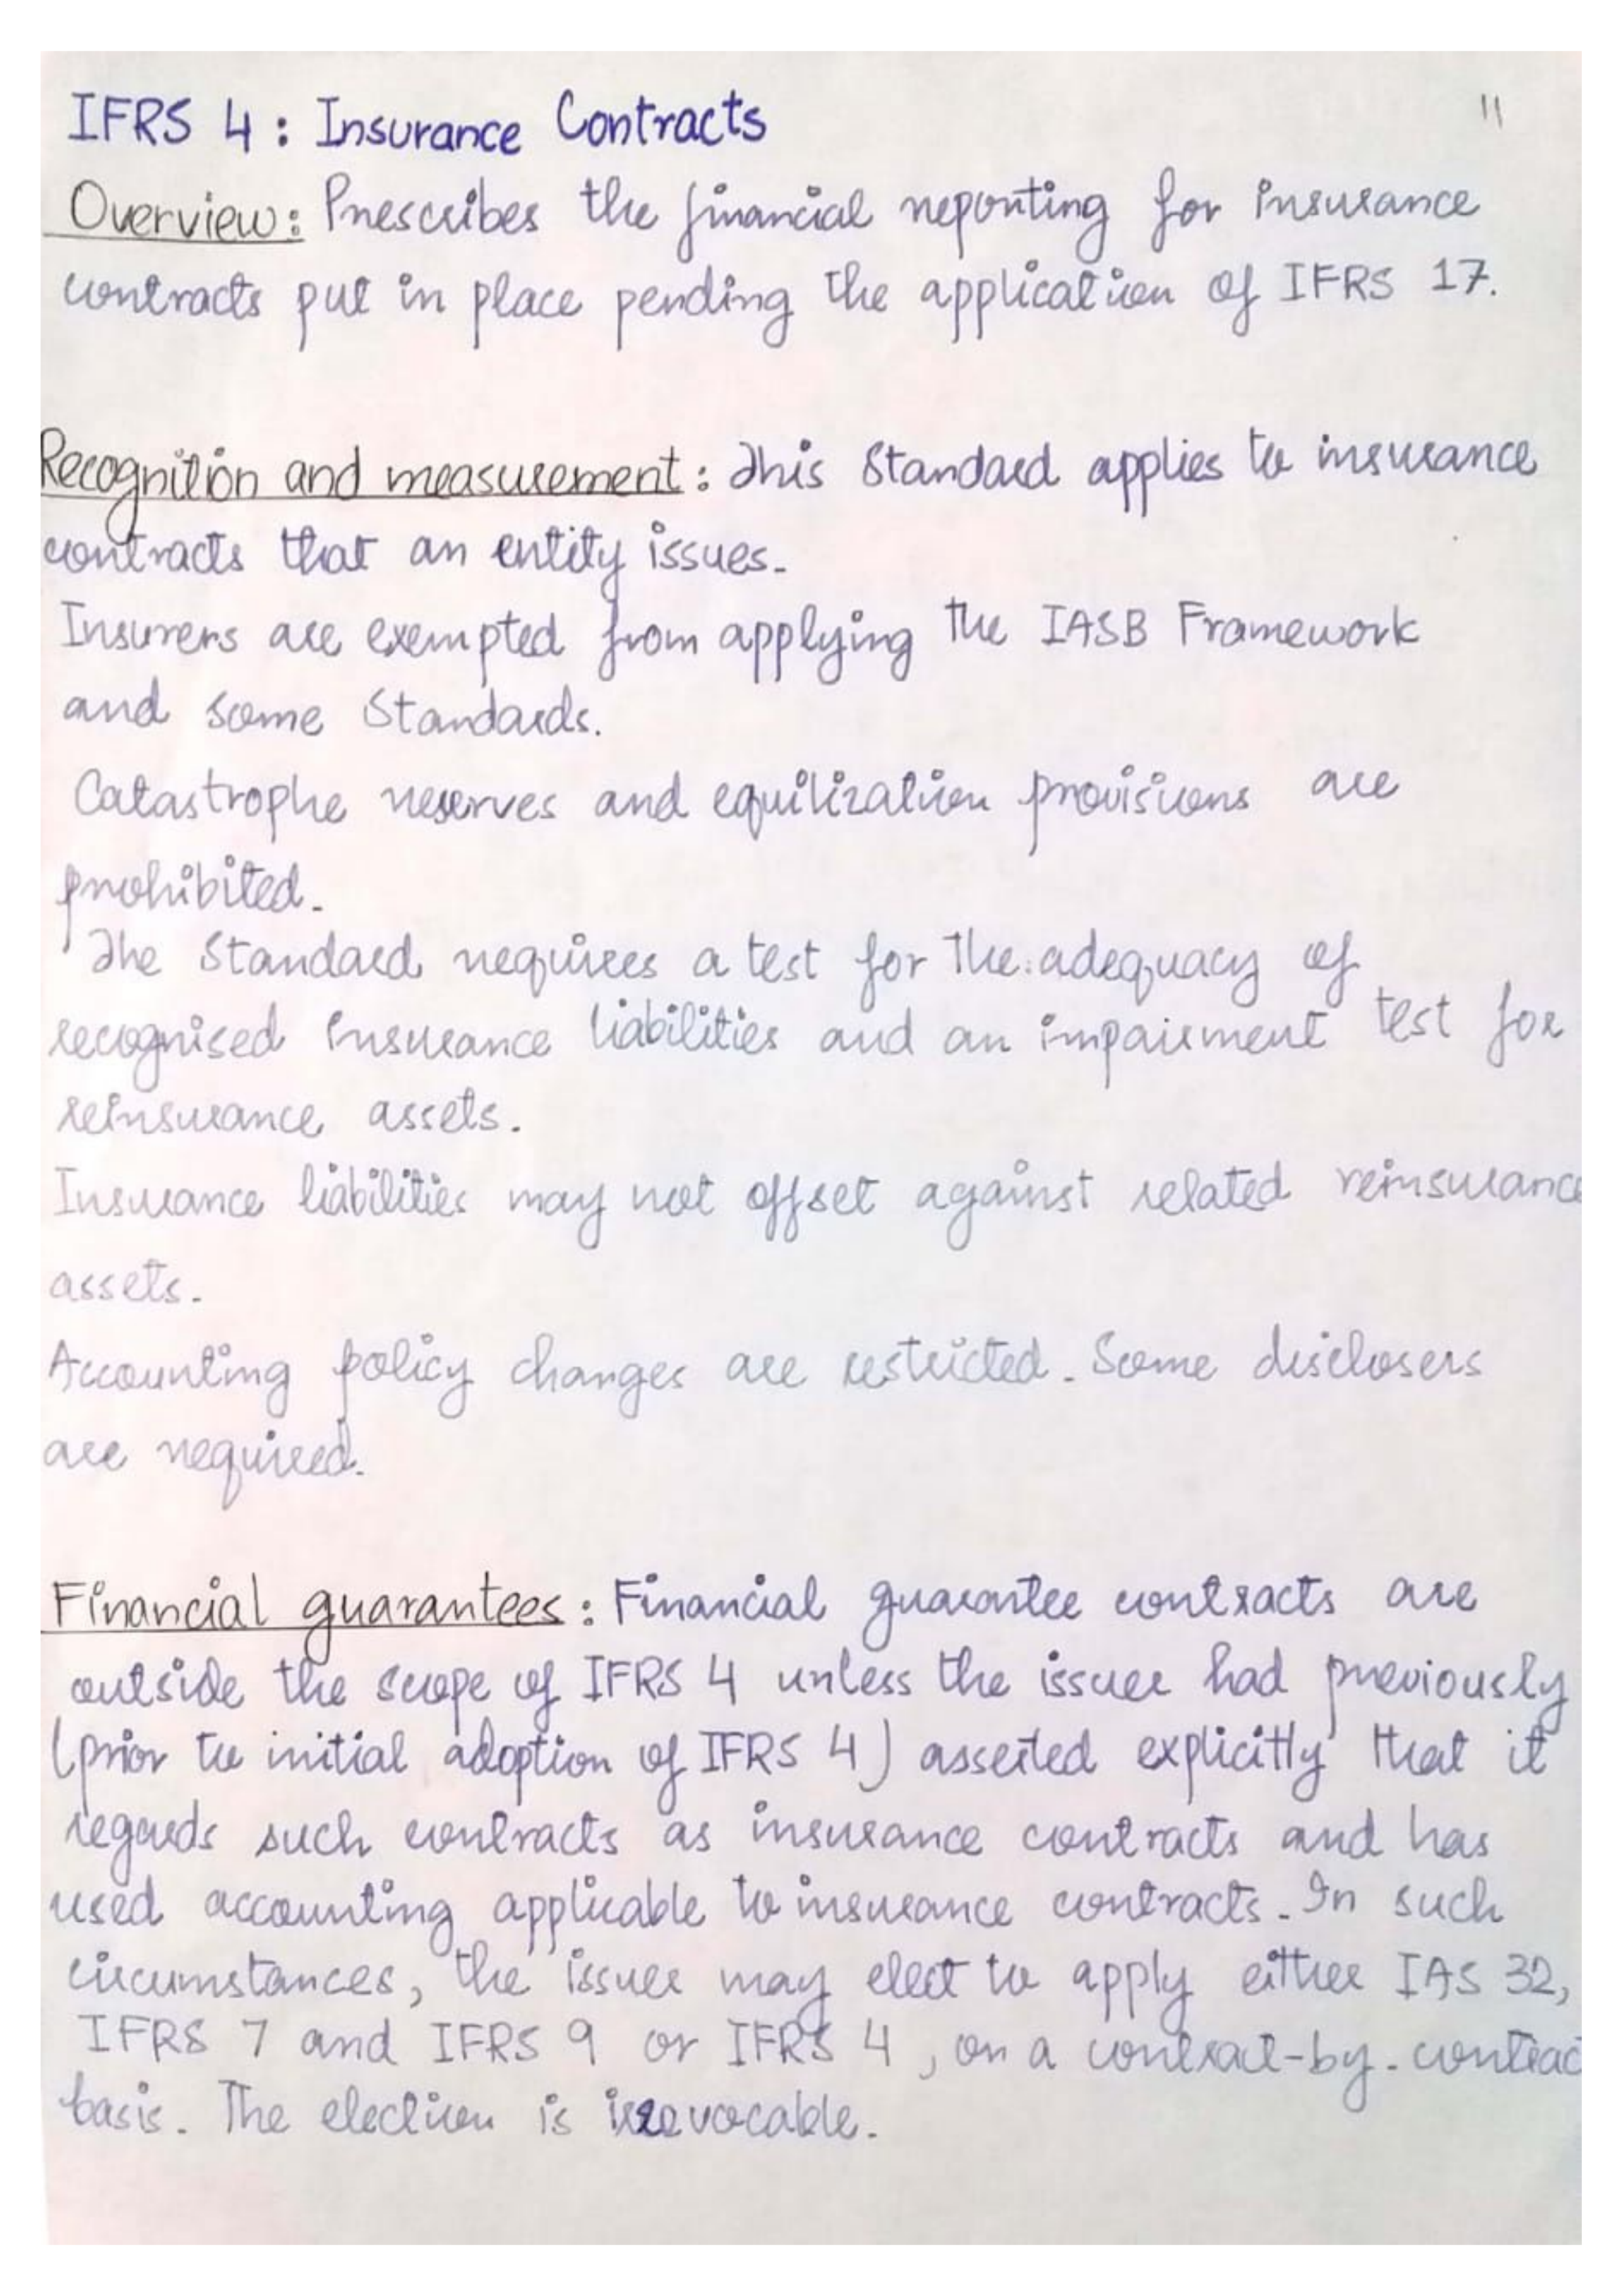 IFRS 4 : Insurance Contracts
11
Overview: Prescribes the financial reporting for insurance
contracts put in place pending the application of IFRS 17.
Recognition and measurement : This Standard applies to insurance
contracts that an entity issues.
Insurers are exempted from applying the IASB Framework
and some Standards.
Catastrophe reserves and equilization provisions are
prohibited.
The Standard requires a test for the adequacy of
recognised insurance liabilities and an impairment test for
reinsurance assets.
Insurance liabilities may not offset against related reinsurance
assets.
Accounting policy changes are restricted. Some disclosers
are required.
Financial guarantees : Financial guarantee contracts are
outside the scope of IFRS 4 unless the issuer had previously
(prior to initial adoption of IFRS 4) asserted explicitly that it
regards such contracts as insurance contracts and has
used accounting applicable to insurance contracts. In such
circumstances, the issuer may elect to apply either IAS 32,
IFRS 7 and IFRS 9 or IFRS 4, on a contract-by-contrac
basis. The election is irrevocable.